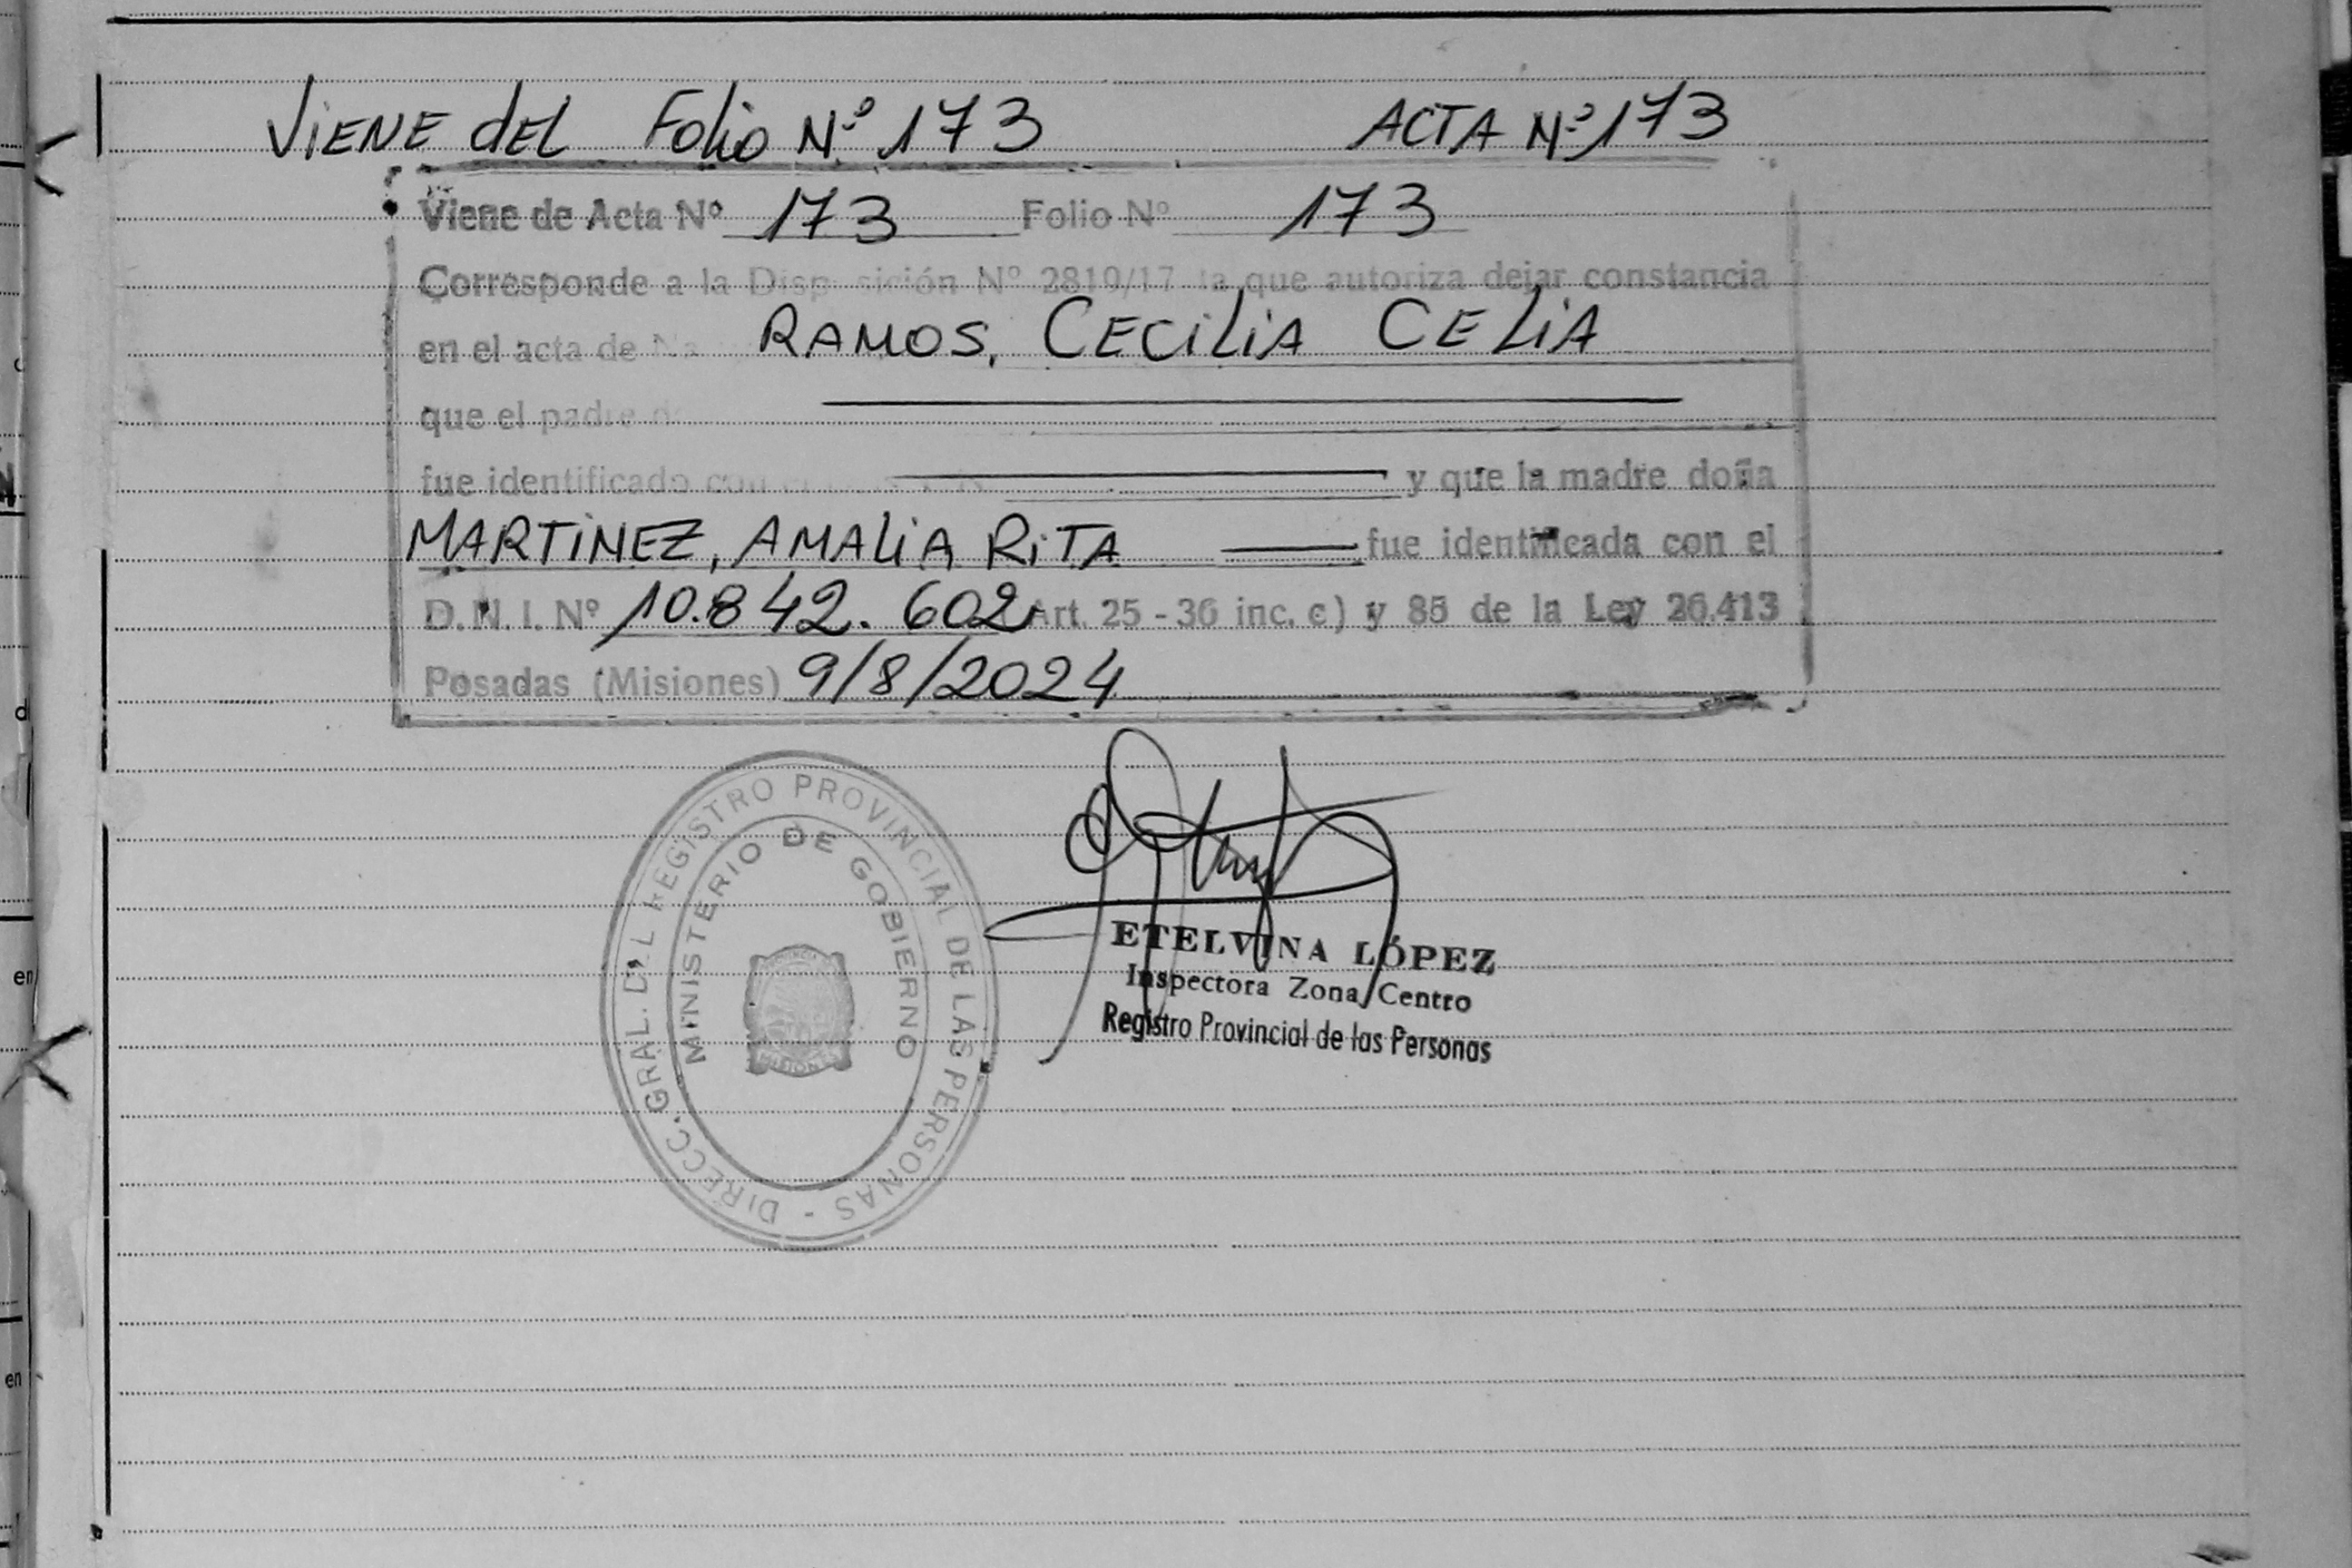 VIENE DEL FOLIO Nº 173 ACTA Nº 173
Viene de Acta Nº 173 Folio Nº 173
Corresponde a la Disposición Nº 2819/17 la que autoriza dejar constancia
en el acta de RAMOS, CECILIA CELIA
que el padre
fue identificado con y que la madre doña
MARTINEZ, AMALIA RITA fue identificada con el
D.N.I. Nº 10.842.602 Art. 25 - 36 inc. c) y 85 de la Ley 26.413
Posadas (Misiones) 9/8/2024
DIRECC. GRAL. DEL REGISTRO PROVINCIAL DE LAS PERSONAS -
MINISTERIO DE GOBIERNO
MISIONES
ETELVINA LÓPEZ
Inspectora Zona Centro
Registro Provincial de las Personas
en
en